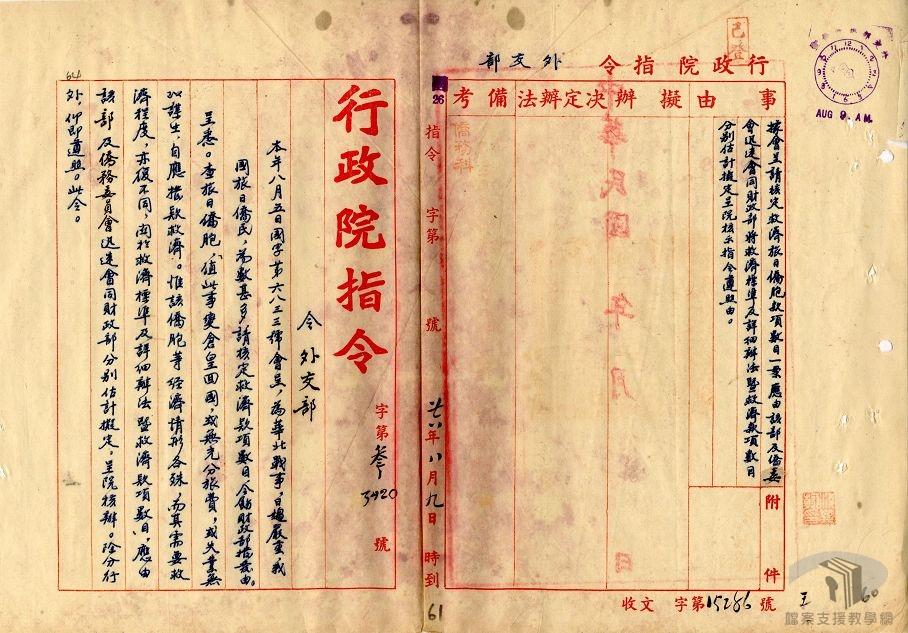 行政院指令 外交部
已登
AUG 9. A.M.
事由 擬辦 決定辦法 備考
據會呈請核定救濟旅日僑胞款項數目一案應由該部及僑委
會迅速會同財政部將救濟標準及詳細辦法暨救濟款項數目
分別估計擬定呈院核示指令遵照由。
附件
僑務科
中華民國 年 月 日
收文 字第15286號
26
指令 字第 號
廿六年八月九日 時到
61
60
64
行政院指令
字第 3420 號
令外交部
本年八月五日國字第六八三三號會呈,為華北戰事,日趨嚴重,我
國旅日僑民,為數甚多請核定救濟款項數目令飭財政部撥發由。
呈悉。查旅日僑胞,值此事變倉皇回國,或無充分旅費,或失業無
以謀生,自應撥款救濟。惟該僑胞等經濟情形各殊,而其需要救
濟程度,亦復不同,關於救濟標準及詳細辦法暨救濟款項數目,應由
該部及僑務委員會迅速會同財政部分別估計擬定,呈院核辦。除分行
外,仰即遵照。此令。
檔案支援教學網